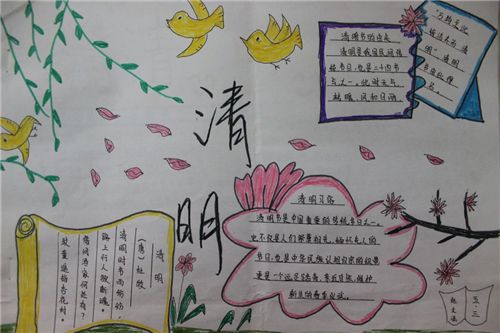 清
明
清明节的由来
清明是我国民间传
统节日,也是二十四节
气之一,此时天气
清明
(唐) 杜牧
清明时节雨纷纷
路上行人欲断魂。
借问酒家何处有?
牧童遥指杏花村。
清明习俗
清明节是中国重要的传统节日之一,
节日,也是中华民族认祖归宗的纽带
更是一个远足踏青、亲近自然、催护
新生的春季仪式。
五·三